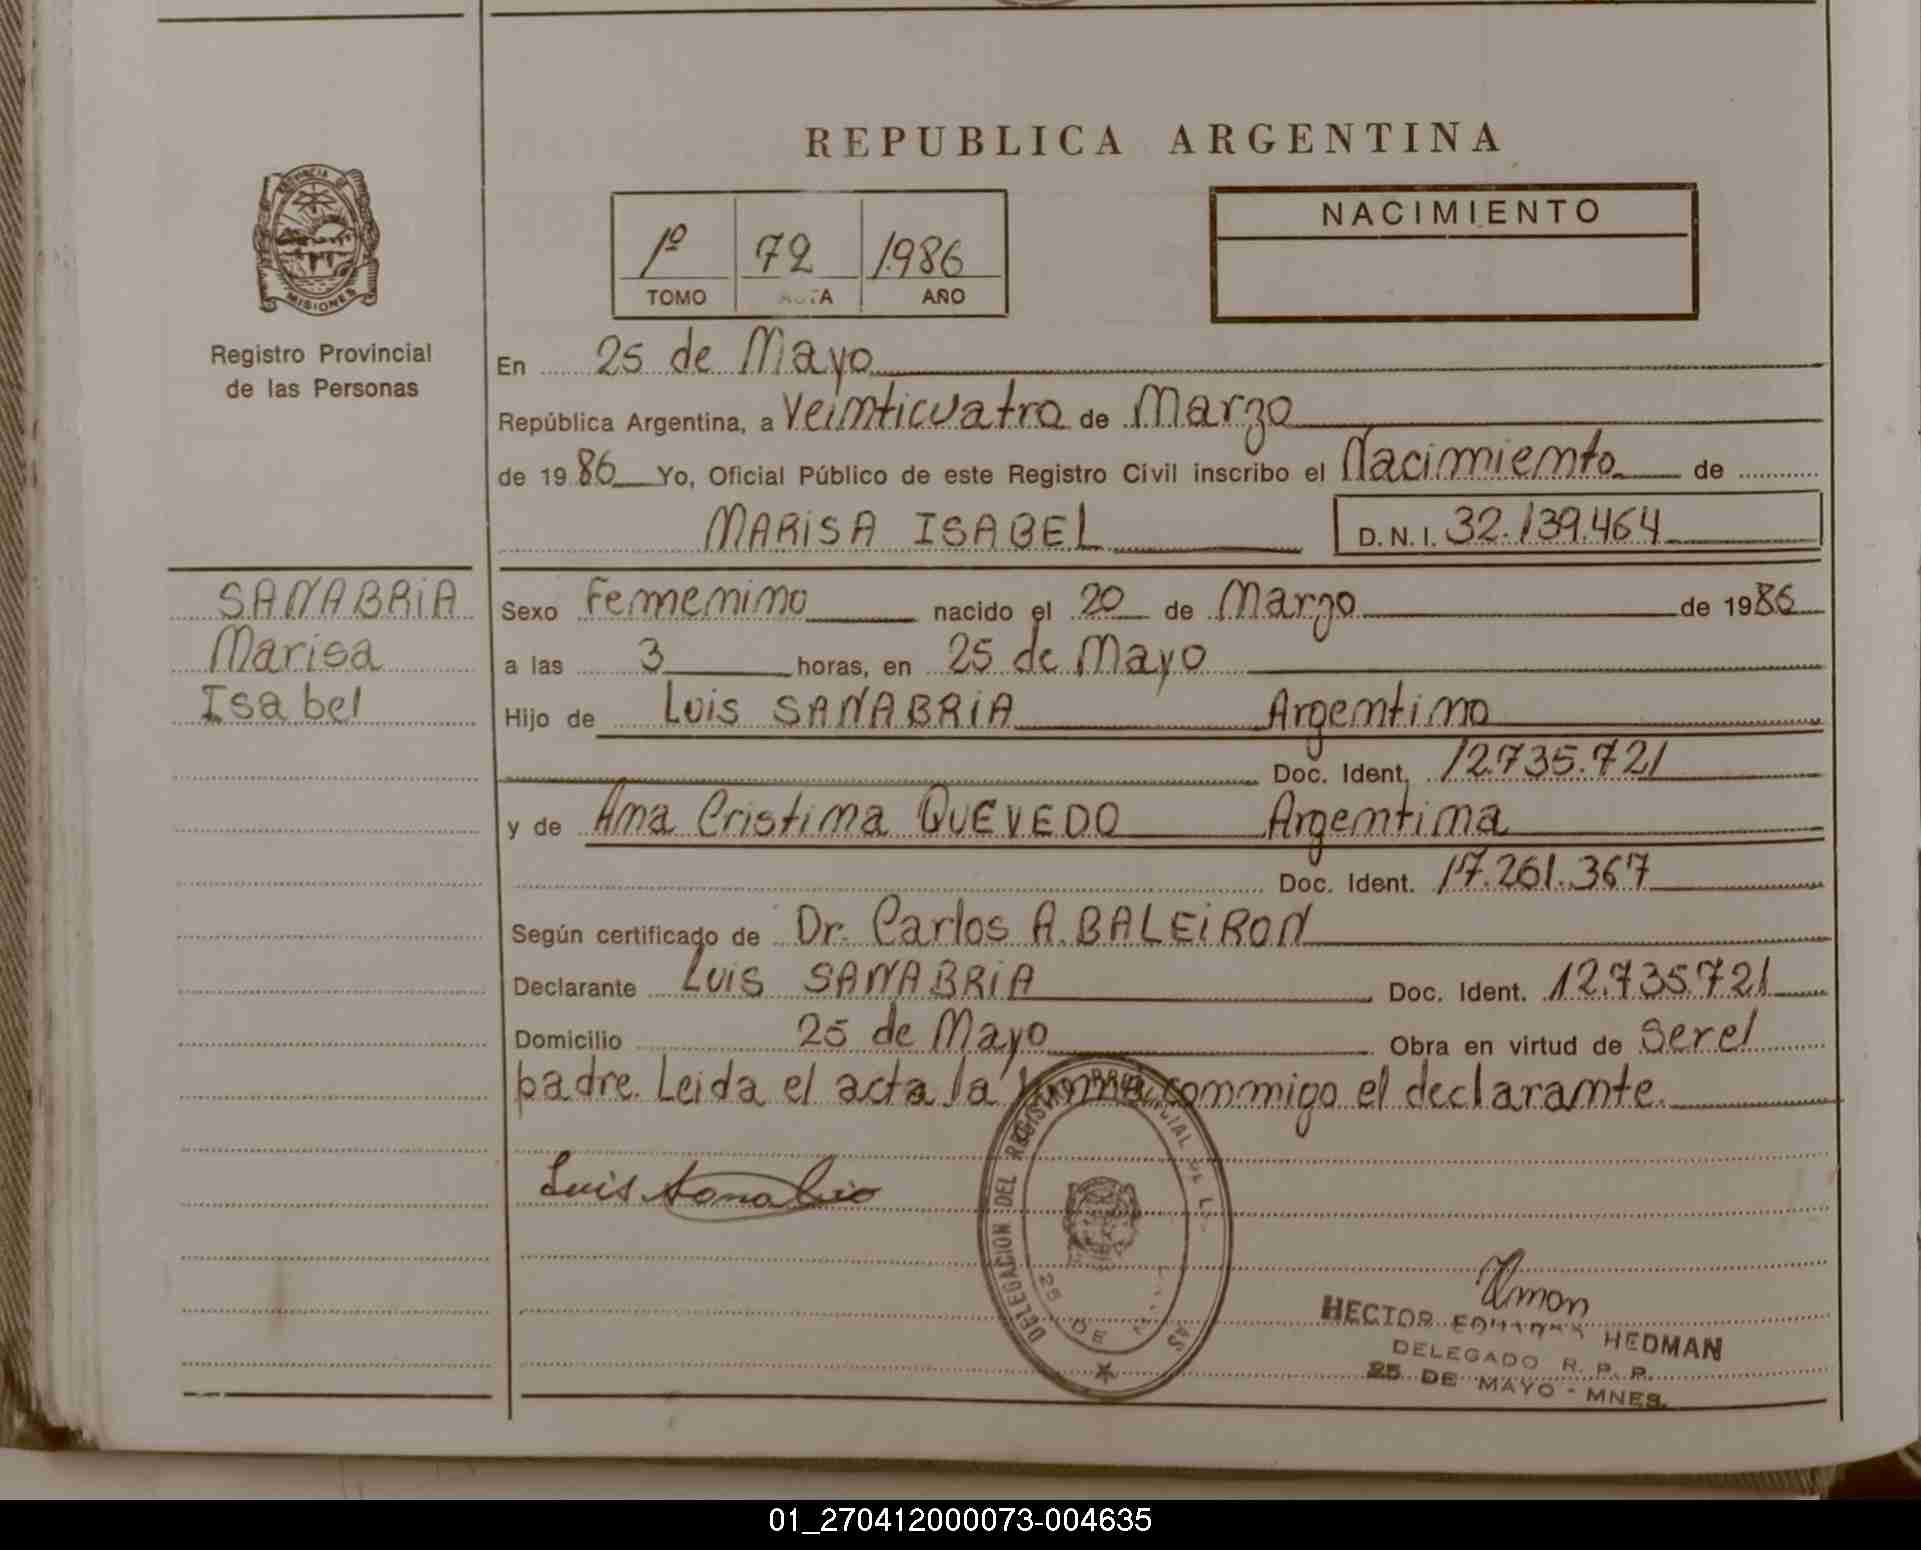 REPUBLICA ARGENTINA
PROVINCIA DE
MISIONES
Registro Provincial
de las Personas
1º 72 1986
TOMO ACTA AÑO
NACIMIENTO
En 25 de Mayo
República Argentina, a Veinticuatro de Marzo
de 1986 Yo, Oficial Público de este Registro Civil inscribo el Nacimiento de
MARISA ISABEL D.N.I. 32.139.464
SANABRIA
Marisa
Isabel
Sexo Femenino nacido el 20 de Marzo de 1986
a las 3 horas, en 25 de Mayo
Hijo de Luis SANABRIA Argentino
Doc. Ident. 12.735.721
y de Ana Cristina QUEVEDO Argentina
Doc. Ident. 17.261.367
Según certificado de Dr. Carlos A. BALEIRON
Declarante Luis SANABRIA Doc. Ident. 12.735.721
Domicilio 25 de Mayo Obra en virtud de Ser el
padre. Leida el acta la firma conmigo el declarante.
Luis Sanabria
DELEGACION DEL REGISTRO PROVINCIAL DE L AS
25 DE
HECTOR EDUARDO HEDMAN
DELEGADO R. P. P.
25 DE MAYO - MNES.
01_270412000073-004635